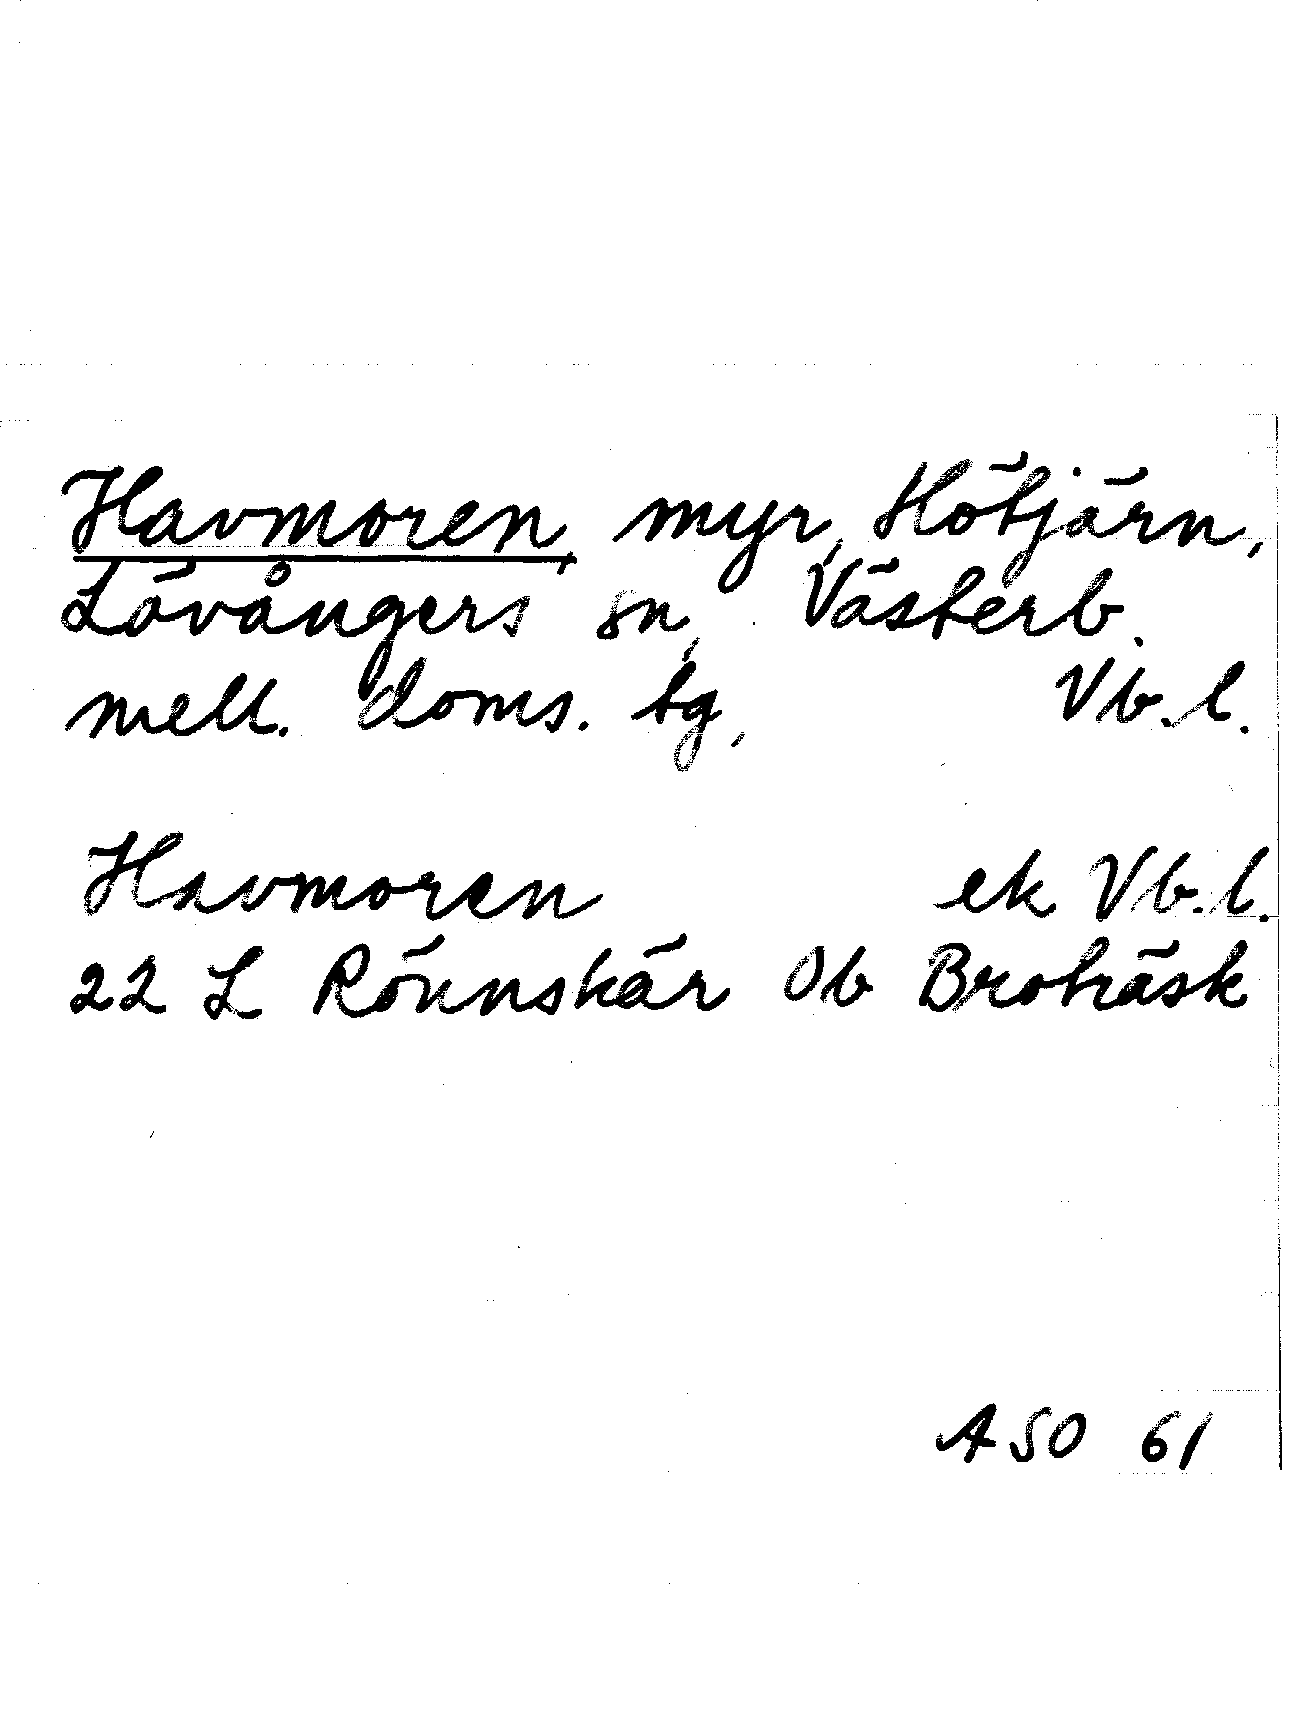 Havmoren, myr, Hötjärn,
Lövångers sn, Västerb.
mell. doms. tg, Vb. l.
Havmoren ek Vb. l.
22 L Rönnskär Ob Broträsk
ASO 61